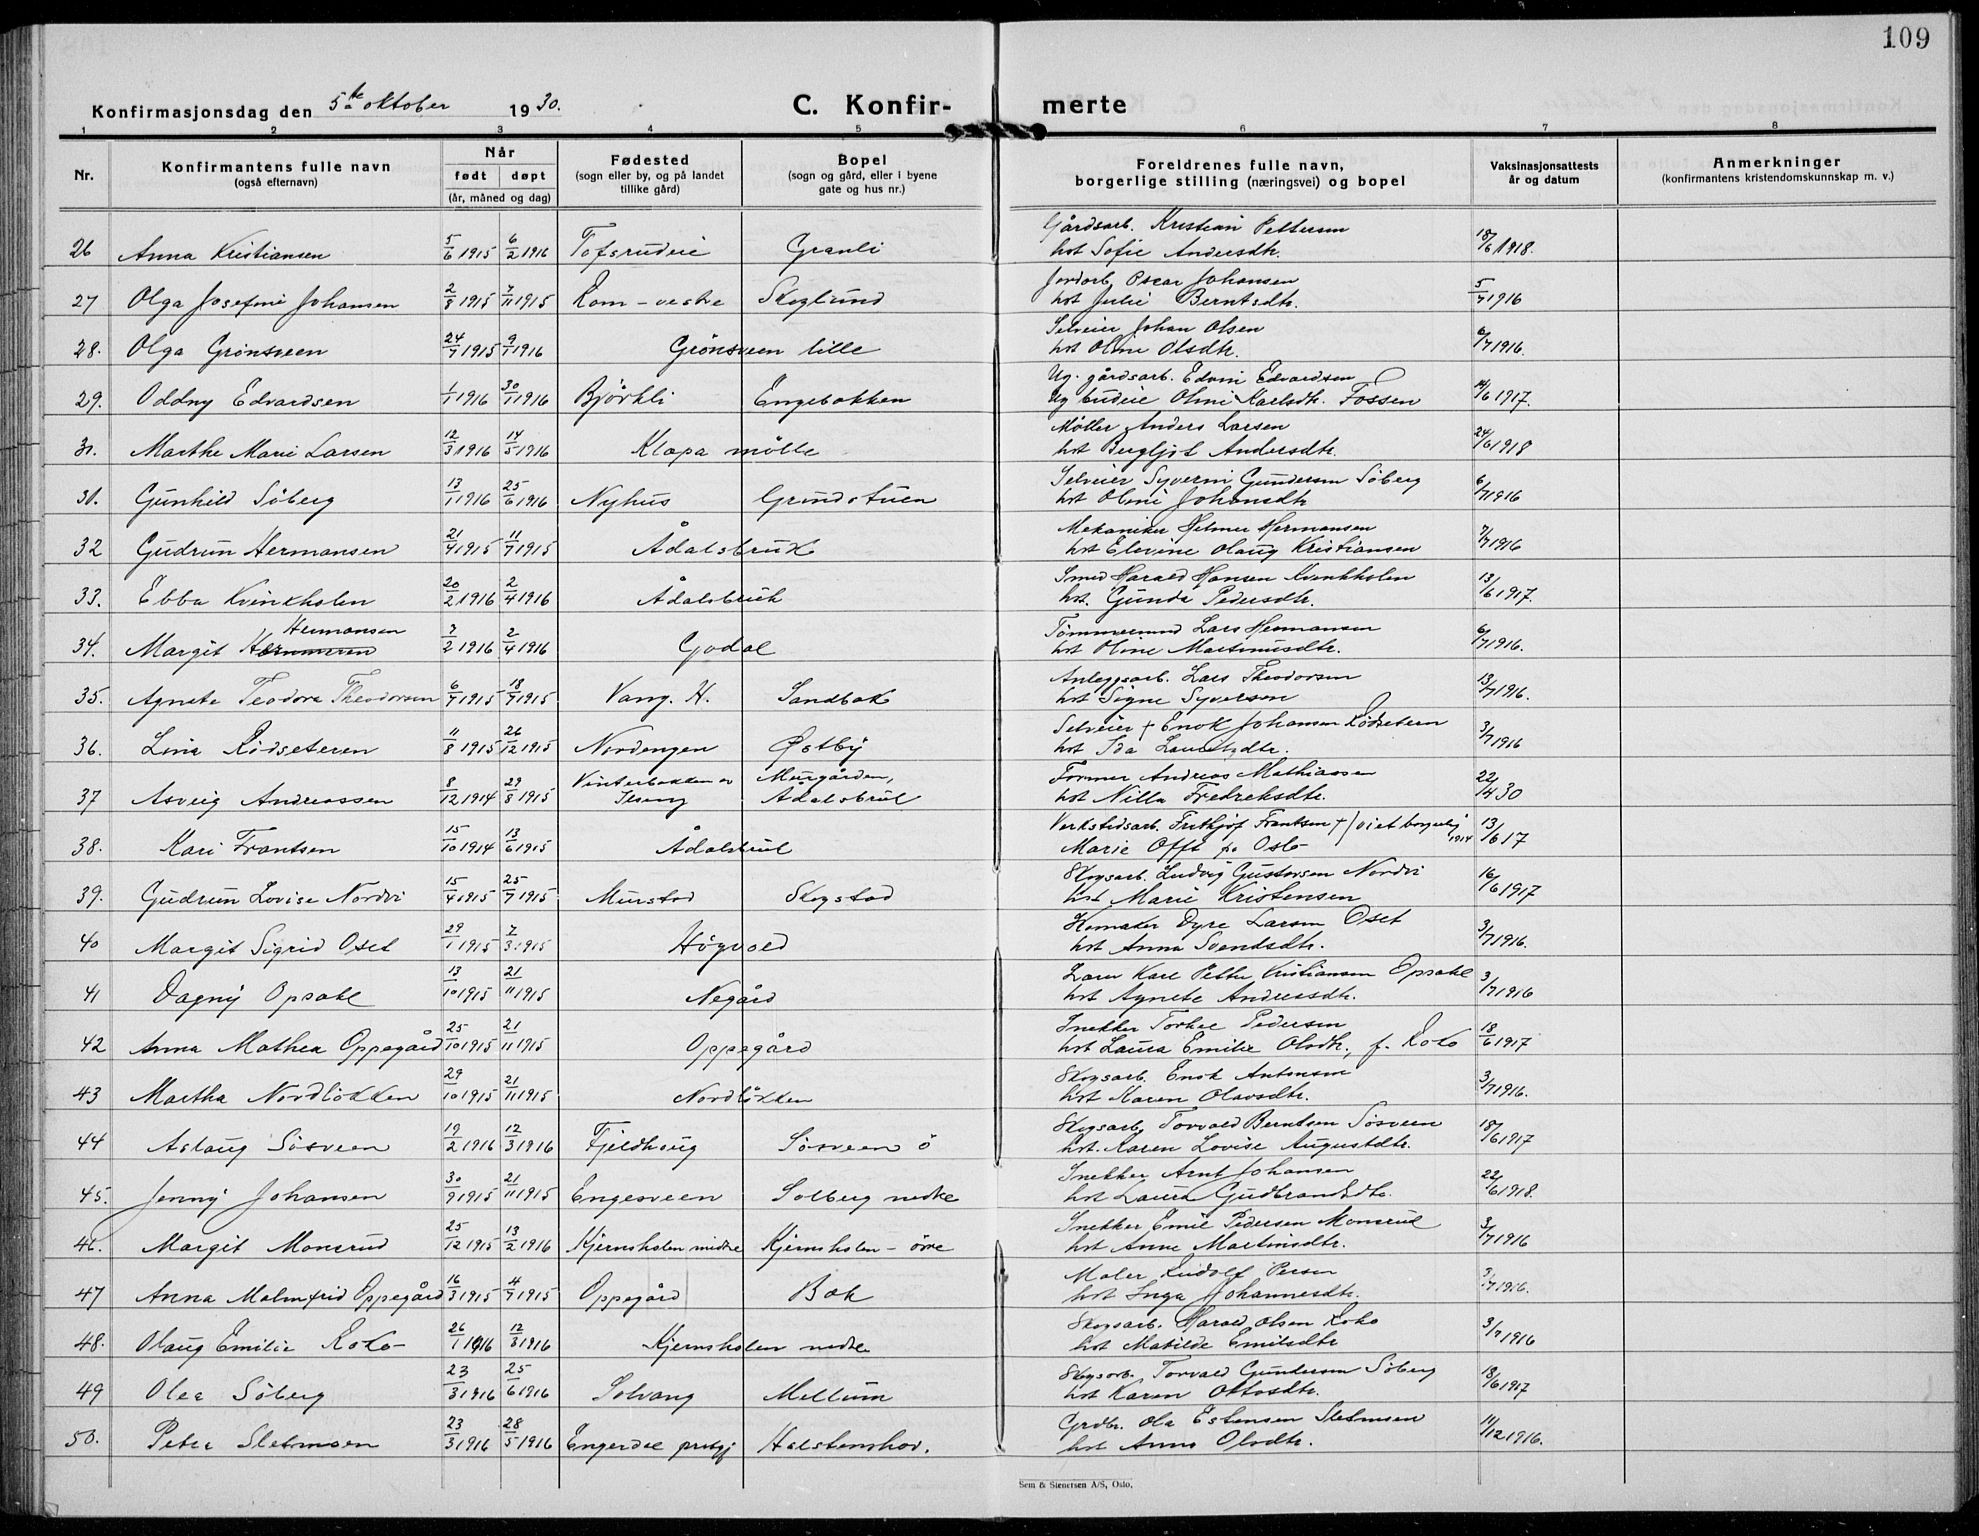 109
Konfirmasjonsdag den 5te oktober 1930.
C. Konfirmerte
1 2 3 4 5 6 7 8
Nr. | Konfirmantens fulle navn (også efternavn) | Når født døpt (år, måned og dag) | Fødested (sogn eller by, og på landet tillike gård) | Bopel (sogn og gård, eller i byene gate og hus nr.) | Foreldrenes fulle navn, borgerlige stilling (næringsvei) og bopel | Vaksinasjonsattests år og datum | Anmerkninger (konfirmantens kristendomskunnskap m. v.)
26 Anna Kristiansen 5/6 1915 6/2 1916 Tofsrudeie Granli Gårdsarb. Kristian Pettersen
hst Sofie Andersdtr. 18/6 1918.
27 Olga Josefine Johansen 2/8 1915 7/11 1915 Rom-vestre Skoglund Jordarb. Oscar Johansen
hst Julie Berntsdtr. 5/7 1916
28. Olga Grönsveen 24/7 1915 9/1 1916 Grönsveen lille Selveier Johan Olsen
hst Oline Olsdtr. 6/7 1916.
29. Oddny Edvardsen 1/1 1916 30/1 1916 Björkli Engebakken Ug. gårdsarb. Edvin Edvardsen
ug budeie Oline Karlsdtr. Fossen 14/6 1917.
30. Marthe Marie Larsen 12/3 1916 14/5 1916 Klapa mölle Möller Anders Larsen
hst Bergljot Andersdtr. 24/6 1918
31. Gunhild Söberg 13/1 1916 25/6 1916 Nyhus Grindstuen Selveier Syverin Gundersen Söberg
hst Oline Johansdtr 6/7 1916
32 Gudrun Hermansen 21/4 1915 11/7 1915 Ådalsbruk Mekaniker Helmer Hermansen
hst Elevine Olaug Kristiansen 7/7 1916
33. Ebba Kvinkholen 20/2 1916 2/4 1916 Ådalsbruk Smed Harald Hansen Kvinkholen
hst. Gunda Pedersdtr. 13/6 1917.
Hermansen
34. Margit 7/2 1916 2/4 1916 Godal Tömmermand Lars Hermansen
hst Oline Martinusdtr. 6/7 1916.
35. Agnete Teodora Theodorsen 6/7 1915 18/7 1915 Vang. H. Sandbak Anleggsarb. Lars Theodorsen
hst Signe Syversen 13/7 1916.
36. Lina Rödseteren 11/8 1915 26/12 1915 Nordengen Østby Selveier + Enok Johansen Rödseteren
hst Ida Lauritzdtr. 3/7 1916
37 Asveig Andreassen 8/12 1914 29/8 1915 Vinterbakken av Ilseng Murgården, Ådalsbruk Former Andreas Mathiassen
hst Nilla Fredriksdtr. 22/4 30
38. Kari Frantsen 15/10 1914 13/6 1915 Ådalsbruk Verkstedsarb. Frithjof Frantsen + / viet borgerlig 1914
Marie Offt på Oslo 13/6 17
39. Gudrun Lovise Nordvi 15/4 1915 25/7 1915 Murstad Skogstad Skogsarb. Ludvig Gustavsen Nordvi
hst Marie Kristensen 16/6 1917
40 Margit Sigrid Oset 29/1 1915 7/3 1915 Högvold Hemater Dyre Larsen Oset
hst Anna Svendsdtr. 3/7 1916.
41 Dagny Opsahl 13/10 1915 21/11 1915 Negård Lærer Karl Petter Kristiansen Opsahl
hst Agnete Andreasdtr. 3/7 1916
42 Anna Mathea Oppegård 25/10 1915 21/11 1915 Oppegård Snekker Torkel Pedersen
hst Laura Emilie Olsdtr., f. Roko 18/6 1917
43 Martha Nordlökken 29/10 1915 21/11 1915 Nordlökken Skogsarb. Enok Antonsen
hst Karen Olavsdtr. 3/7 1916.
44 Aslaug Sösveen 19/2 1916 12/3 1916 Fjeldhaug Sösveen ö Skogsarb. Torvald Berntsen Sösveen
hst. Karen Lovise Augustdtr. 18/6 1917
45. Jenny Johansen 30/9 1915 21/11 1915 Engesveen Solberg nedre Snekker Arnt Johansen
hst Laura Gudbrandsdtr. 22/6 1918.
46. Margit Monsrud 25/12 1915 13/2 1916 Kjernsholen midtre Kjernsholen - övre Snekker Emil Pedersen Monsrud
hst Anne Martinsdtr. 3/7 1916
47 Anna Malmfrid Oppegård 16/3 1915 4/7 1915 Oppegård Bak Maler Rudolf Persen
hst Inga Johannesdtr. 3/7 1916.
48. Olaug Emilie Roko 26/1 1916 12/3 1916 Kjernsholen nedre Skogsarb. Harald Olsen Roko
hst Matilde Emilsdtr 3/7 1916
49 Olea Söberg 23/3 1916 25/6 1916 Solvang Mellum Skogsarb. Torvald Gundersen Söberg
hst Karen Ottosdtr. 18/6 1917
50. Petra Sletmoen 23/3 1916 28/5 1916 Engerdal prstgj Halstenshov. Grdbr. Ola Estensen Sletmoen
hst Anne Olsdtr. 11/12 1916.
Sem & Stenersen A/S, Oslo.